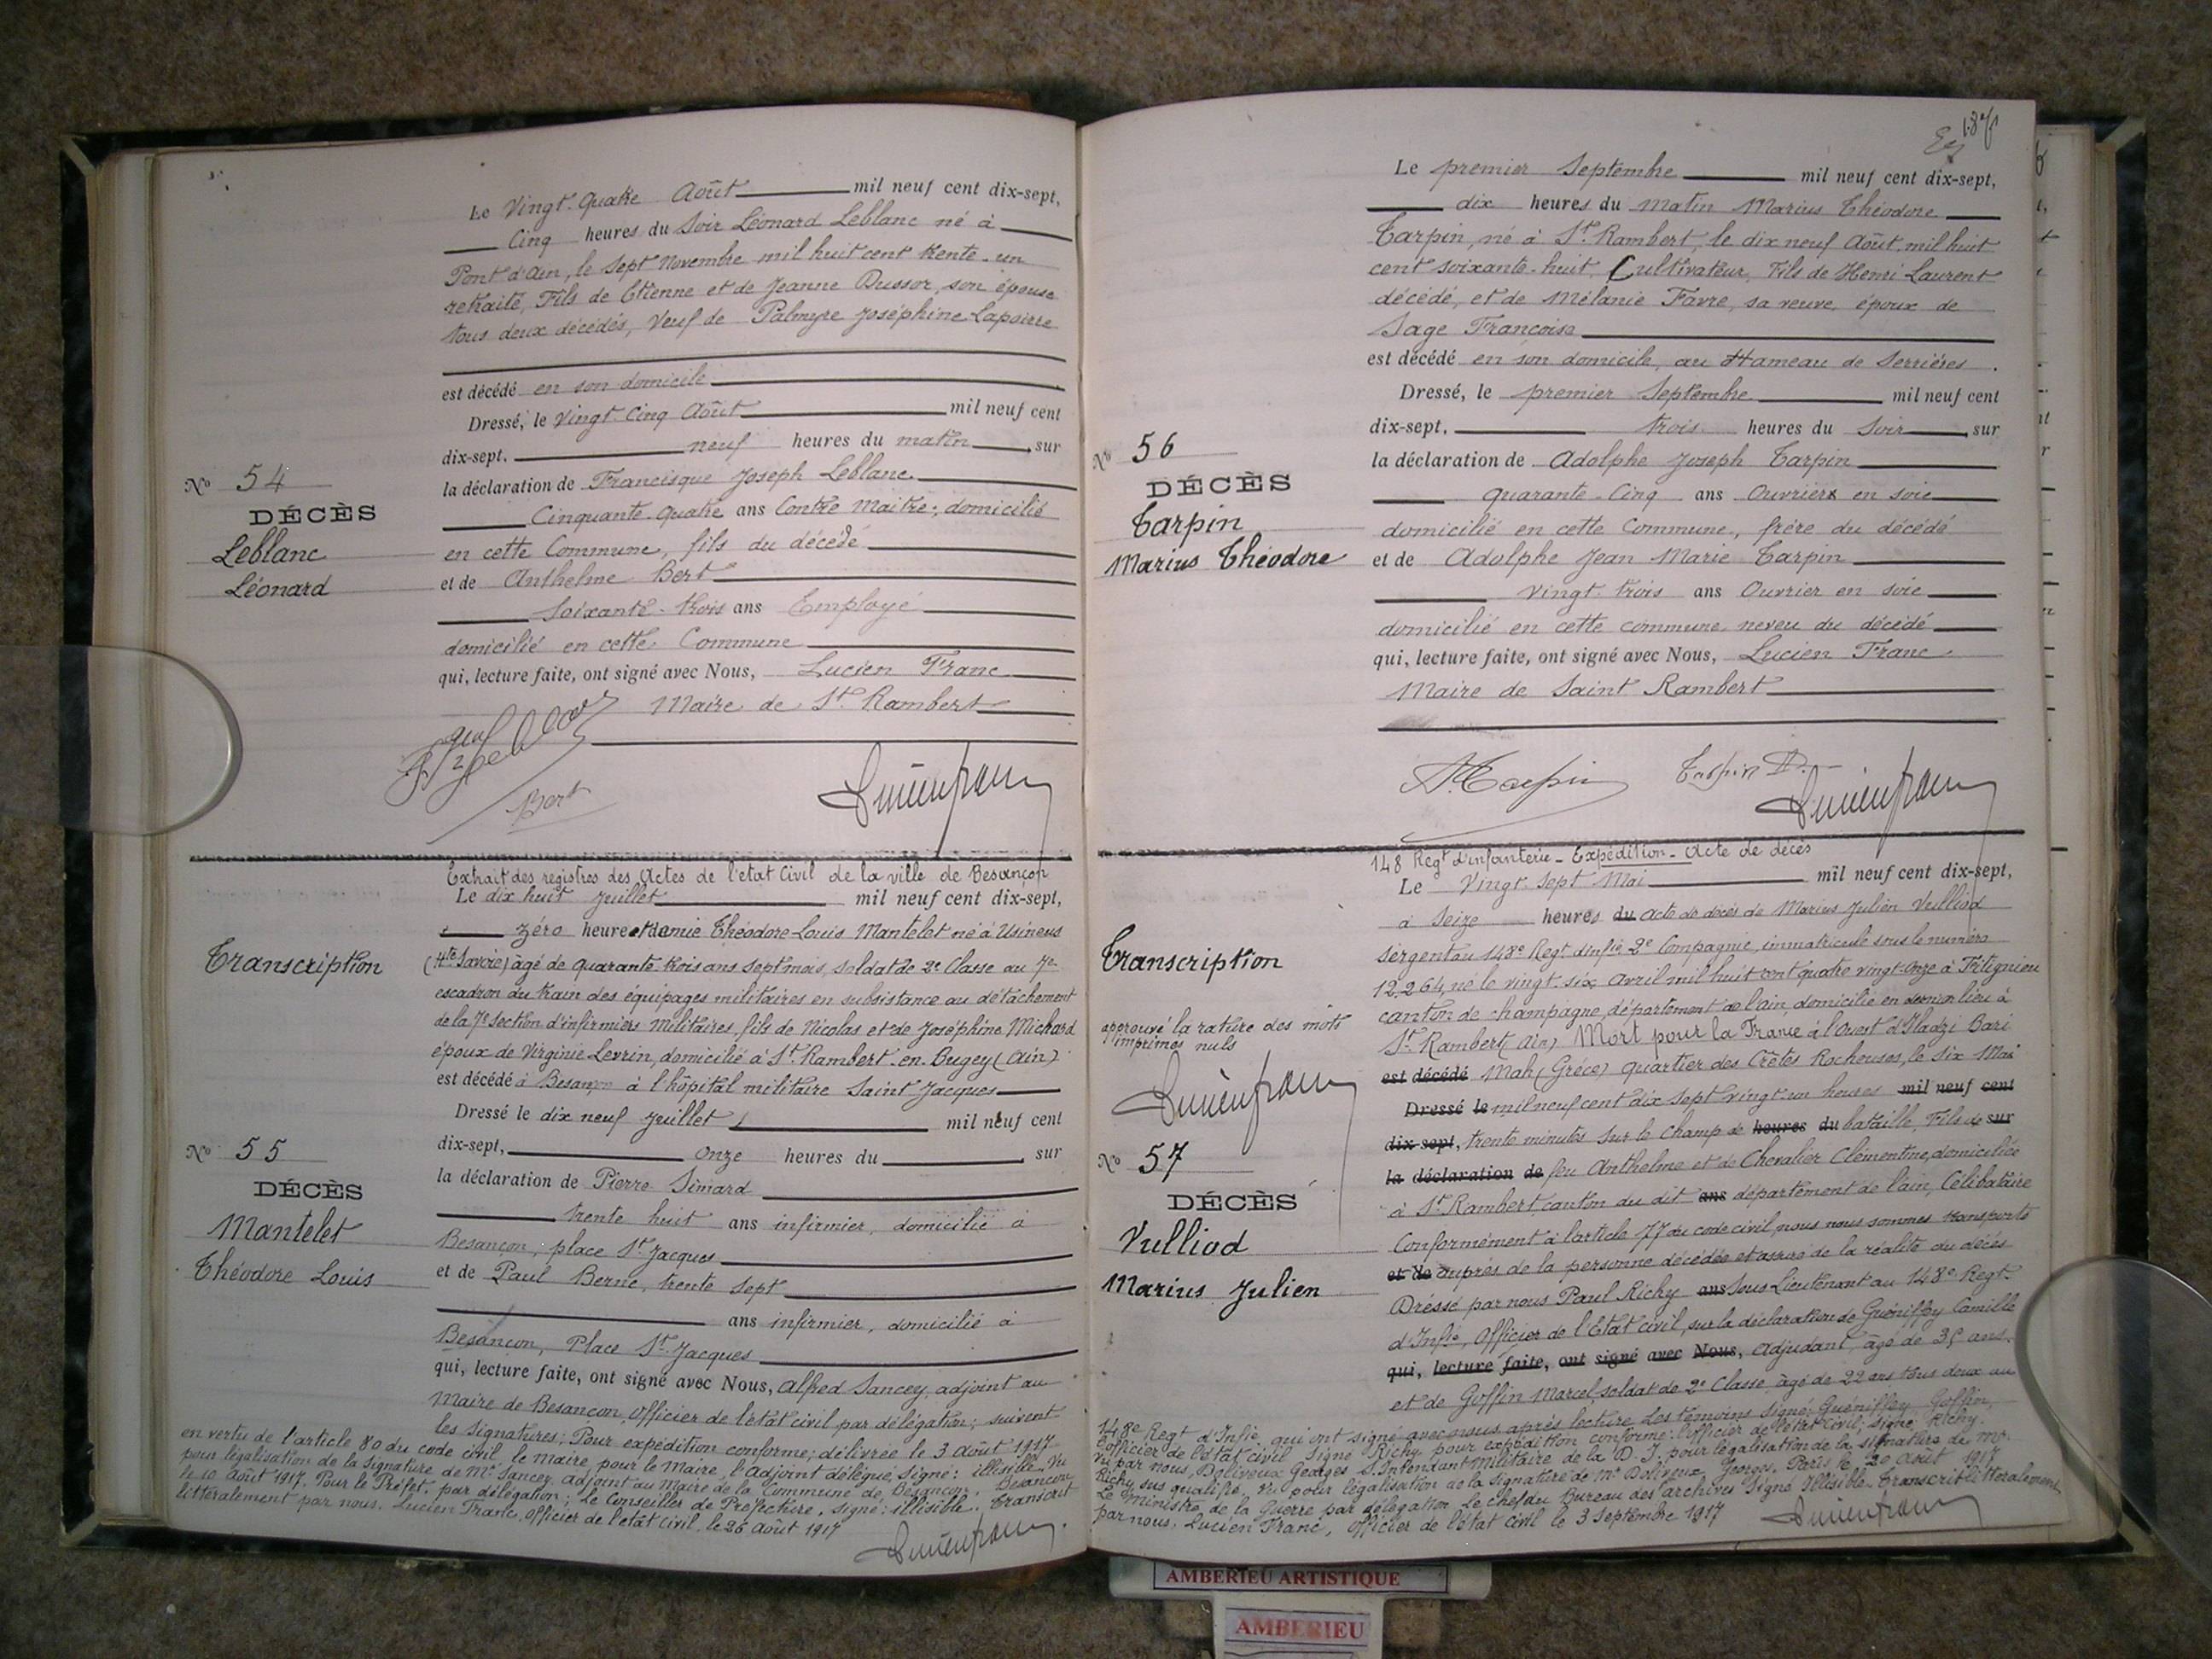 Le Vingt-Quatre Août mil neuf cent dix-sept,
Cinq heures du Soir Léonard Leblanc né à
Pont d'Ain, le Sept Novembre mil huit cent trente-un
retraité, Fils de Etienne et de Jeanne Dussor, son épouse
tous deux décédés, Veuf de Palmyre Joséphine Lapierre
est décédé en son domicile
Dressé, le Vingt Cinq Août mil neuf cent
dix-sept. neuf heures du matin, sur
la déclaration de Francisque Joseph Leblanc
Cinquante-quatre ans Contre Maître, domicilié
en cette Commune, fils du décédé
et de Anthelme Bert
Soixante-trois ans Employé
domicilié en cette Commune
qui, lecture faite, ont signé avec Nous, Lucien Franc
Maire de St. Rambert
No 54
DÉCÈS
Leblanc
Léonard
Bert
Lucien franc
Extrait des registres des Actes de l'etat Civil de la ville de Besançon
Le dix huit Juillet mil neuf cent dix-sept,
zéro heure et demie Théodore Louis Mantelet né à Usinens
(Hte Savoie) âgé de quarante-trois ans sept mois, soldat de 2e Classe au 7e
escadron du train des équipages militaires en subsistance au détachement
de la 7e Section d'infirmiers militaires, fils de Nicolas et de Joséphine Michard
époux de Virginie Levrin, domicilié à St. Rambert-en-Bugey (Ain)
est décédé à Besançon à l'hôpital militaire Saint Jacques
Dressé le dix neuf Juillet mil neuf cent
dix-sept, Onze heures du sur
la déclaration de Pierre Simard
trente huit ans infirmier, domicilié à
Besançon, place St. Jacques
et de Paul Berne, trente sept
ans infirmier, domicilié à
Besançon, Place St. Jacques
qui, lecture faite, ont signé avec Nous, Alfred Sancey, adjoint au
Maire de Besançon, Officier de l'état civil par délégation; suivent
les Signatures; Pour expédition conforme; délivrée le 3 Août 1917
en vertu de l'article 80 du code civil. le Maire, pour le Maire, l'Adjoint délégué, signé: illisible. Vu
pour légalisation de la signature de Mr. Sancey, Adjoint au Maire de la Commune de Besançon. Besançon
le 10 Août 1917. Pour le Préfet, par délégation; Le Conseiller de Préfecture, signé: illisible. Transcrit
littéralement par nous, Lucien Franc, Officier de l'état civil, le 26 Août 1917
Lucien franc
Transcription
No 55
DÉCÈS
Mantelet
Théodore Louis
Le premier Septembre mil neuf cent dix-sept,
dix heures du matin Marius Théodore
Tarpin, né à St. Rambert, le dix neuf Août mil huit
cent soixante-huit, Cultivateur, Fils de Henri Laurent
décédé, et de Mélanie Favre, sa veuve, époux de
Sage Françoise
est décédé en son domicile, au Hameau de Serrières.
Dressé, le premier Septembre mil neuf cent
dix-sept. trois heures du Soir, sur
la déclaration de Adolphe Joseph Tarpin
Quarante-Cinq ans Ouvrier en soie
domicilié en cette Commune, frère du décédé
et de Adolphe Jean Marie Tarpin
Vingt-trois ans Ouvrier en soie
domicilié en cette commune neveu du décédé
qui, lecture faite, ont signé avec Nous, Lucien Franc
Maire de Saint Rambert
No 56
DÉCÈS
Tarpin
Marius Théodore
A. Tarpin
Tarpin A.
Lucien franc
148 Regt d'infanterie - Expédition - Acte de décès
Le Vingt-Sept Mai mil neuf cent dix-sept,
à Seize heures du Acte de décès de Marius Julien Vulliod
Sergent au 148e Regt. d'Infie 2e Compagnie, immatriculé sous le numéro
12,264, né le vingt-six Avril mil huit cent quatre vingt-Onze à Fitignieu
canton de champagne, département de l'ain, domicilié en dernier lieu à
St. Rambert (Ain) Mort pour la France à l'Ouest d'Hadzi Bari
est décédé Mah (Grèce) quartier des Crêtes Rocheuses, le Six Mai
Dressé le mil neuf cent dix sept vingt-un heures mil neuf cent
dix-sept, trente minutes sur le champ de heures du bataille, Fils de sur
la déclaration de feu Anthelme et de Chevalier Clémentine, domiciliée
à St. Rambert canton du dit ans département de l'ain, Célibataire
Conformément à l'article 77 du code civil, nous nous sommes transporté
et de auprès de la personne décédée et assuré de la réalité du décès
Dressé par nous Paul Richy ans Sous Lieutenant au 148e Regt.
d'Infie, Officier de l'Etat civil, sur la déclaration de Guéniffey Camille
qui, lecture faite, ont signé avec Nous, Adjudant, âgé de 35 ans.
et de Goffin Marcel soldat de 2e Classe, âgé de 22 ans tous deux au
148e Regt d'Infie, qui ont signé avec nous après lecture. Les témoins Signé: Guéniffey Goffin,
l'officier de l'état civil Signé Richy pour expédition conforme: l'officier de l'état Civil; Signé Richy.
Vu par nous, Doliveux Georges S. Intendant Militaire de la D. I. pour légalisation de la signature de Mr.
Richy sus qualifié, Vu pour légalisation de la signature de Mr Doliveux Georges. Paris le 20 Août 1917
Le Ministre de la Guerre par délégation Le chef du Bureau des archives Signé Illisible. Transcrit littéralement
par nous, Lucien Franc, Officier de l'état civil le 3 Septembre 1917
Lucien franc
Transcription
approuvé la rature des mots
imprimés nuls
Lucien franc
No 57
DÉCÈS
Vulliod
Marius Julien
AMBERIEU ARTISTIQUE
AMBERIEU